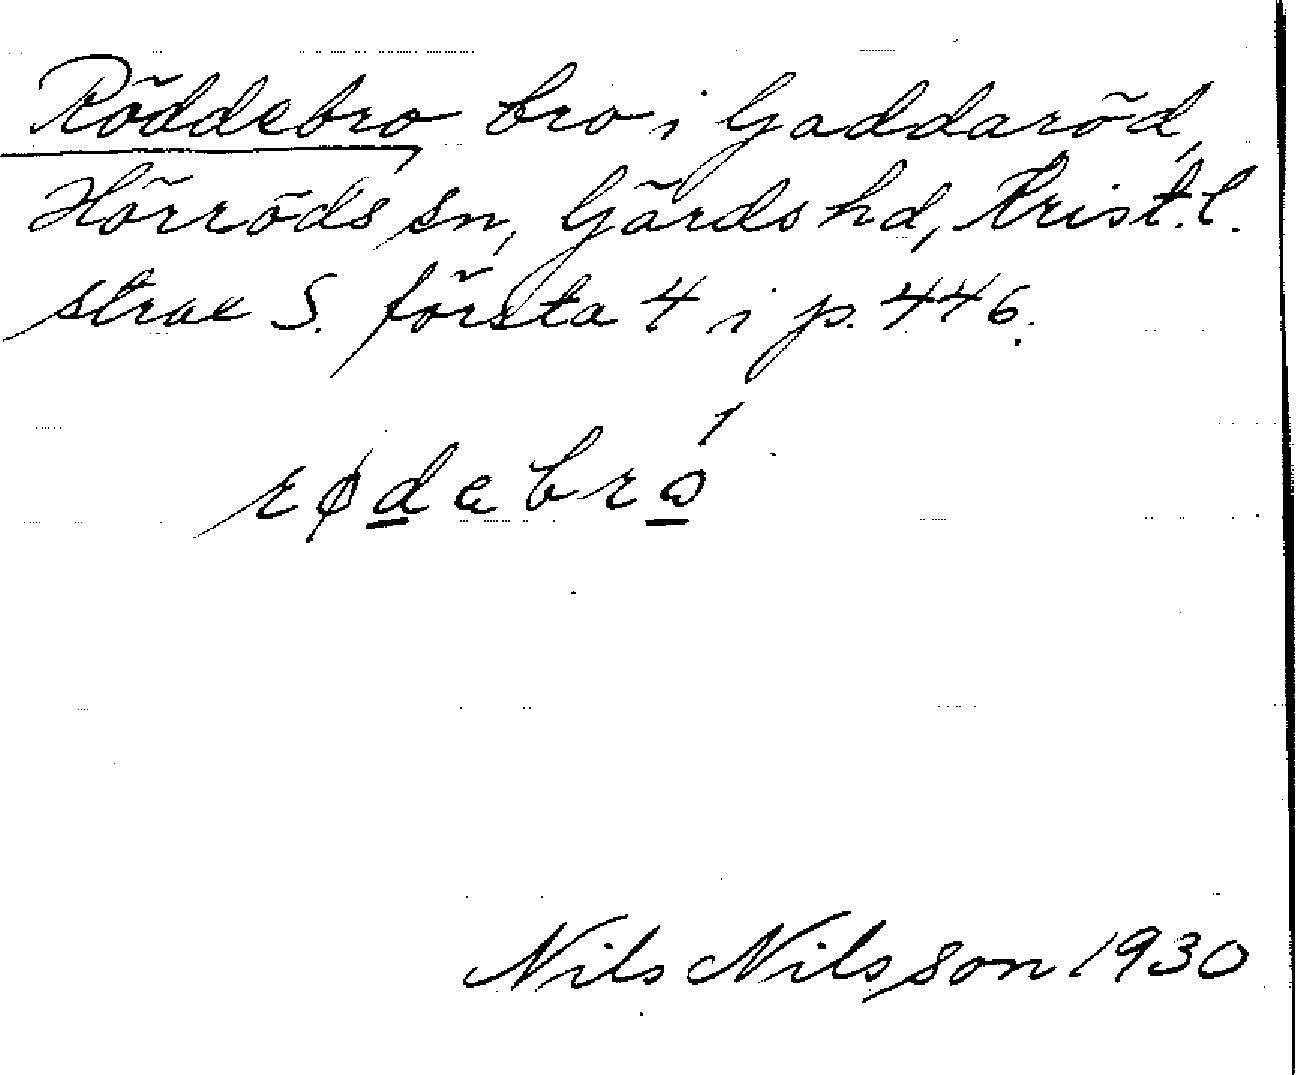 Röddebro, bro i Gaddaröd,
Hörröds sn, Gärds hd, Krist. l.
strax S. första 4 i p. 446.
rødębró
Nils Nilsson 1930